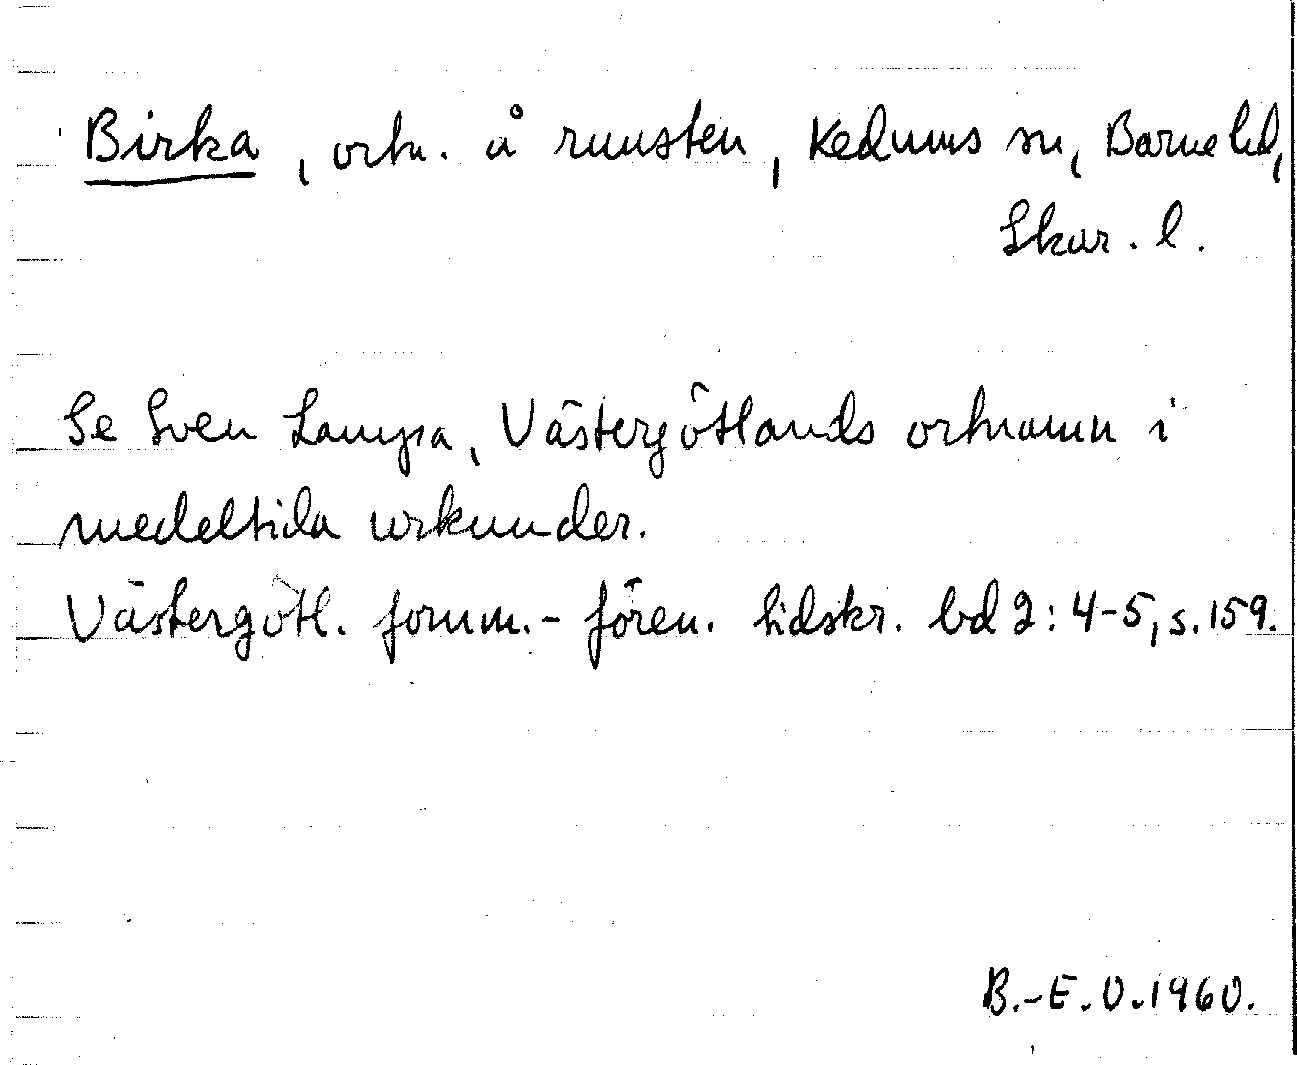 Birka, ortn. å runsten, Kedums sn, Barne hd,
Skar. l.
Se Sven Lampa, Västergötlands ortnamn i
medeltida urkunder.
Västergötl. fornm.-fören. tidskr. bd 2:4-5, s.159.
B.-E.O.1960.